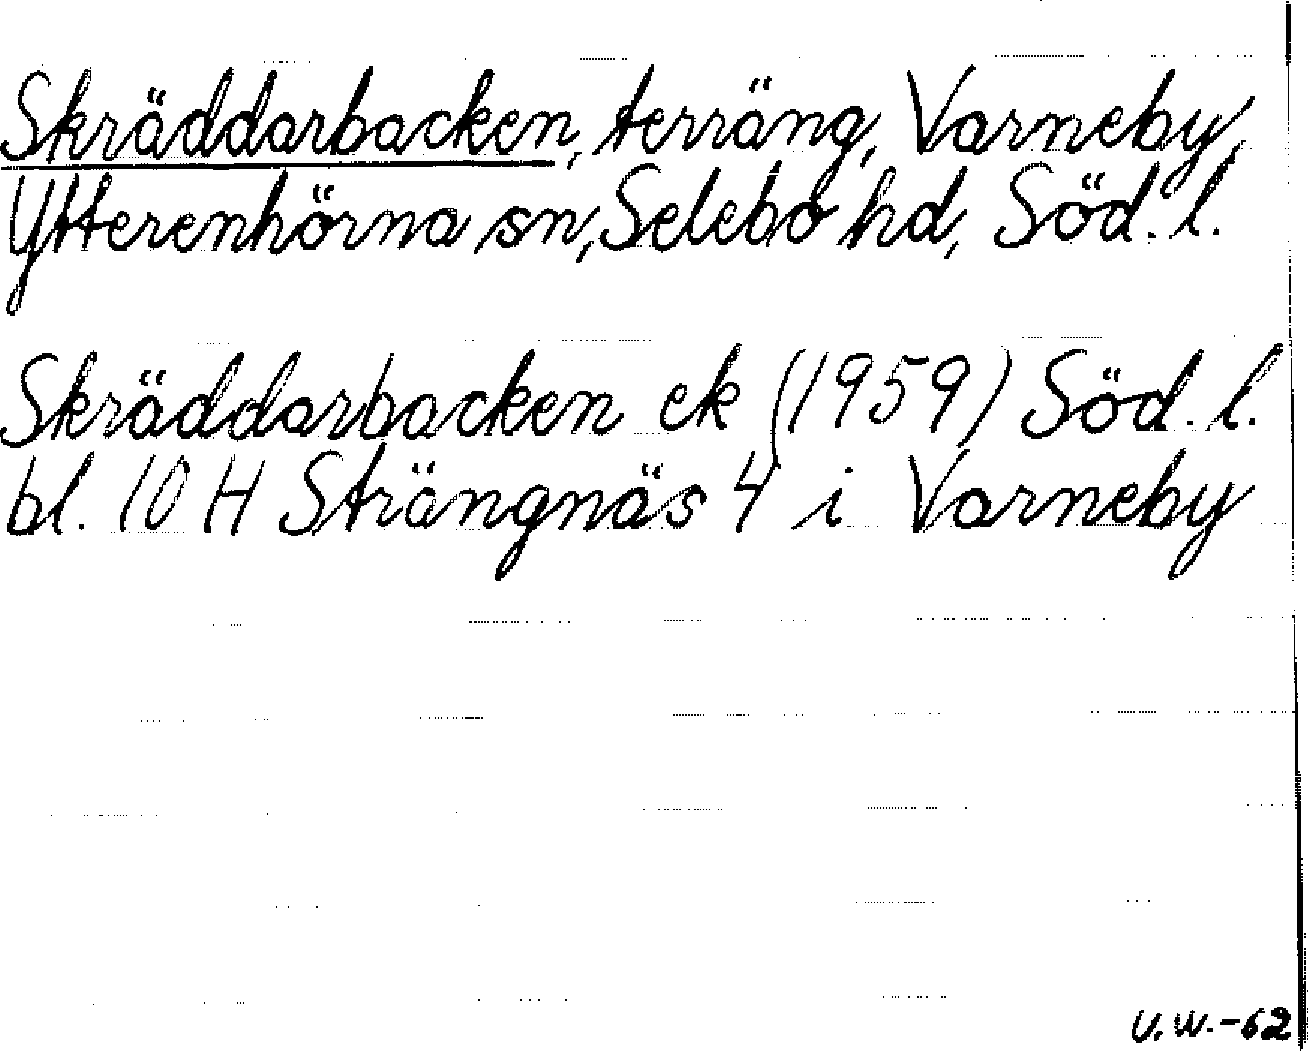 Skräddarbacken, terräng, Varneby,
Ytterenhörna sn, Selebo hd, Söd. l.
Skräddarbacken ek (1959) Söd. l.
bl. 10 H Strängnäs 4 i Varneby
U.W.-62